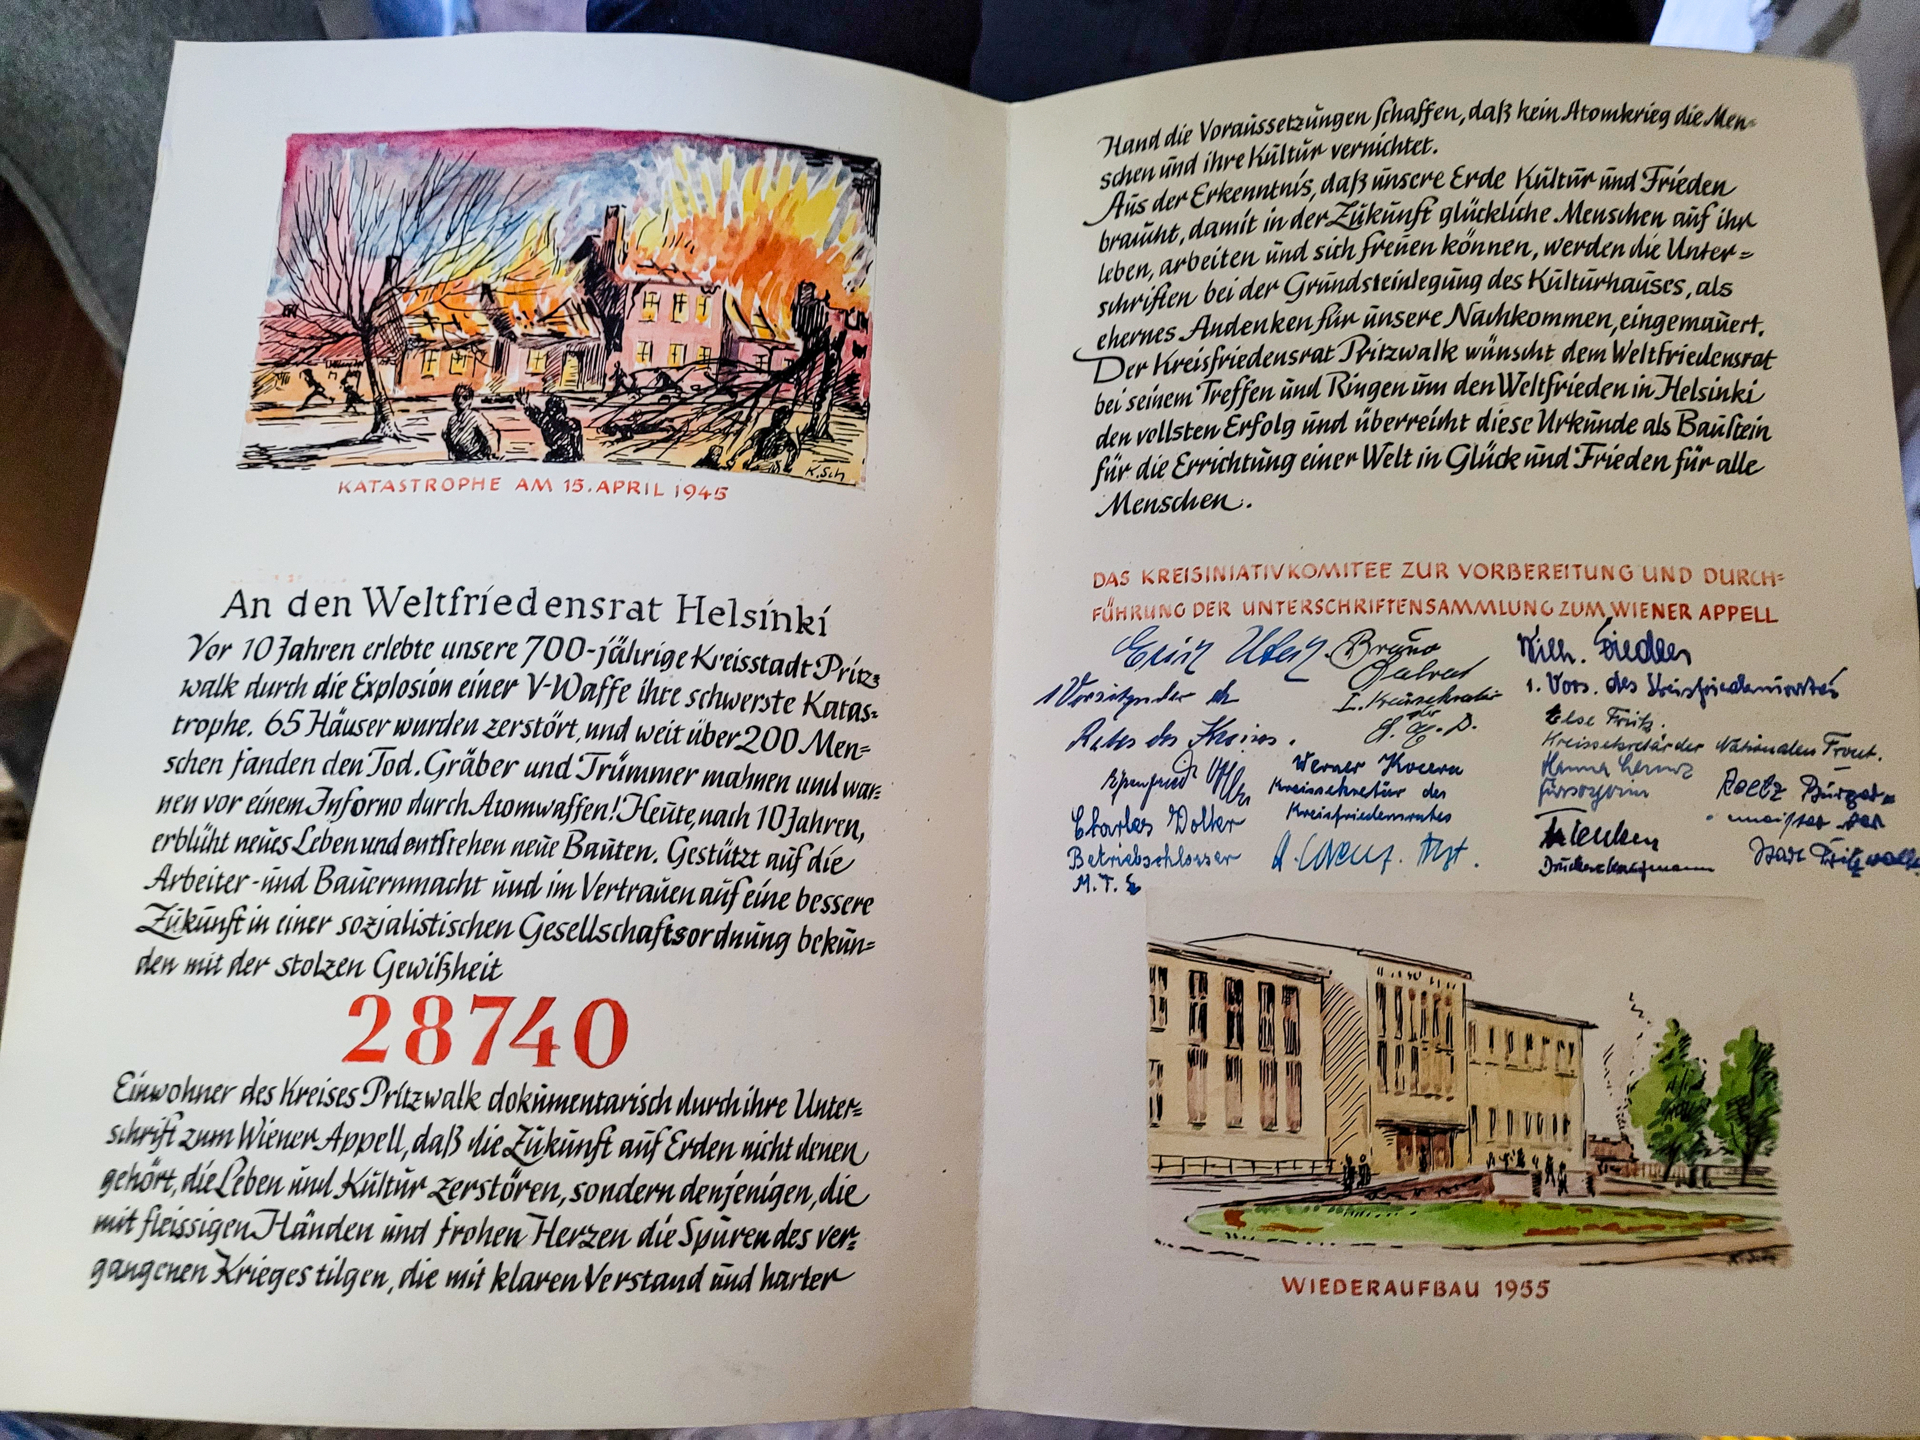 K. Sch
KATASTROPHE AM 15. APRIL 1945
An den Weltfriedensrat Helsinki
Vor 10 Jahren erlebte unsere 700-jährige Kreisstadt Pritz=
walk durch die Explosion einer V-Waffe ihre schwerste Katas=
trophe. 65 Häuser wurden zerstört, und weit über 200 Men=
schen fanden den Tod. Gräber und Trümmer mahnen und war=
nen vor einem Inforno durch Atomwaffen! Heute, nach 10 Jahren,
erblüht neues Leben und entstehen neue Bauten. Gestützt auf die
Arbeiter- und Bauernmacht und im Vertrauen auf eine bessere
Zukunft in einer sozialistischen Gesellschaftsordnung bekun=
den mit der stolzen Gewißheit
28740
Einwohner des Kreises Pritzwalk dokumentarisch durch ihre Unter=
schrift zum Wiener Appell, daß die Zukunft auf Erden nicht denen
gehört, die Leben und Kultur zerstören, sondern denjenigen, die
mit fleissigen Händen und frohen Herzen die Spuren des ver=
gangenen Krieges tilgen, die mit klaren Verstand und harter
Hand die Voraussetzungen schaffen, daß kein Atomkrieg die Men=
schen und ihre Kultur vernichtet.
Aus der Erkenntnis, daß unsere Erde Kultur und Frieden
braucht, damit in der Zukunft glückliche Menschen auf ihr
leben, arbeiten und sich freuen können, werden die Unter=
schriften bei der Grundsteinlegung des Kulturhauses, als
ehernes Andenken für unsere Nachkommen, eingemauert.
Der Kreisfriedensrat Pritzwalk wünscht dem Weltfriedensrat
bei seinem Treffen und Ringen um den Weltfrieden in Helsinki
den vollsten Erfolg und überreicht diese Urkunde als Baustein
für die Errichtung einer Welt in Glück und Frieden für alle
Menschen.
DAS KREISINIATIVKOMITEE ZUR VORBEREITUNG UND DURCH=
FÜHRUNG DER UNTERSCHRIFTENSAMMLUNG ZUM WIENER APPELL
Erich
1 Vorsitzender des
Rates des Kreises.
Bruno
I. Kreissekretär
der
S. E. D.
Wilh.
1. Vors. des Kreisfriedensrates
Else Fritz.
Kreissekretär der Nationalen Front.
Werner Kocera
Kreissekretär des
Kreisfriedensrates
Hanna
Fürsorgerin
Bürger=
meister der
Stadt Pritzwalk
Charles Wolter
Betriebschlosser
M.T.S
Arzt.
WIEDERAUFBAU 1955